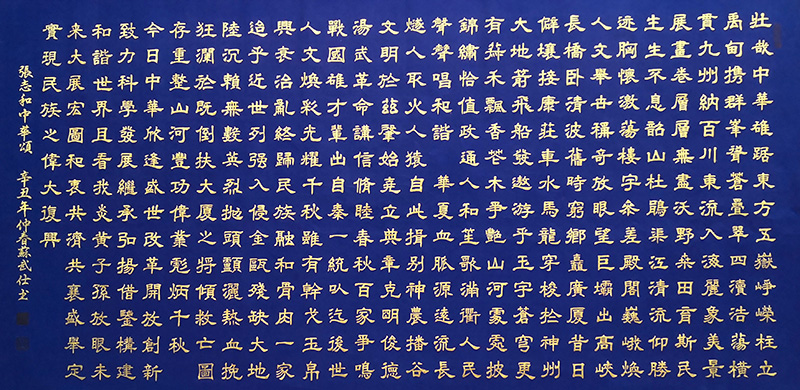 壯哉中華雄踞東方五嶽崢嶸柱立
禹甸携群峯聳蒼疊翠四瀆浩蕩橫
貫九州納百川東流入海麗象美景
展畫卷層層無盡沃野桑田育斯民
生生不息韶山杜鵑渠江清流仰勝
迹胸懷激蕩樓宇參差殿閣巍峨煥
人文舉世稱奇放眼望巨壩出高峽
長橋卧清波舊時窮鄉矗廣厦昔日
僻壤接康莊車水馬龍穿梭於神州
大地蔚飛船發遨游乎玉宇蒼穹更
有禾飄香芲木爭艷山河披
錦繡恰值政通人和笙歌滿衢人民
聲聲唱和諧 華夏血脈源遠流長
燧人取火人猿自此揖別神農播谷
文明於茲肇始堯立典章克明俊德
湯武革命講信脩睦春秋百家爭鳴
戰國雄才輩出自秦一統以迄後世
人文煥彩光耀千秋雖有幹戈玉帛
興衰治亂終歸民族融和骨肉一家
迨乎近世列强入侵金甌殘缺大地
陸沉賴無數英烈抛頭顱灑熱血挽
狂瀾於既倒扶大厦之將傾救亡圖
存重整山河豐功偉業彪炳千秋
今日中華欣逢盛世改革開放創新
致力科學發展繼承弘揚借鑒構建
和諧世界且看我炎黃子孫放眼未
来大展宏圖和衷共濟共襄盛舉定
實現民族之偉大復興
張志和中華頌 辛丑年仲春蘇武仕书